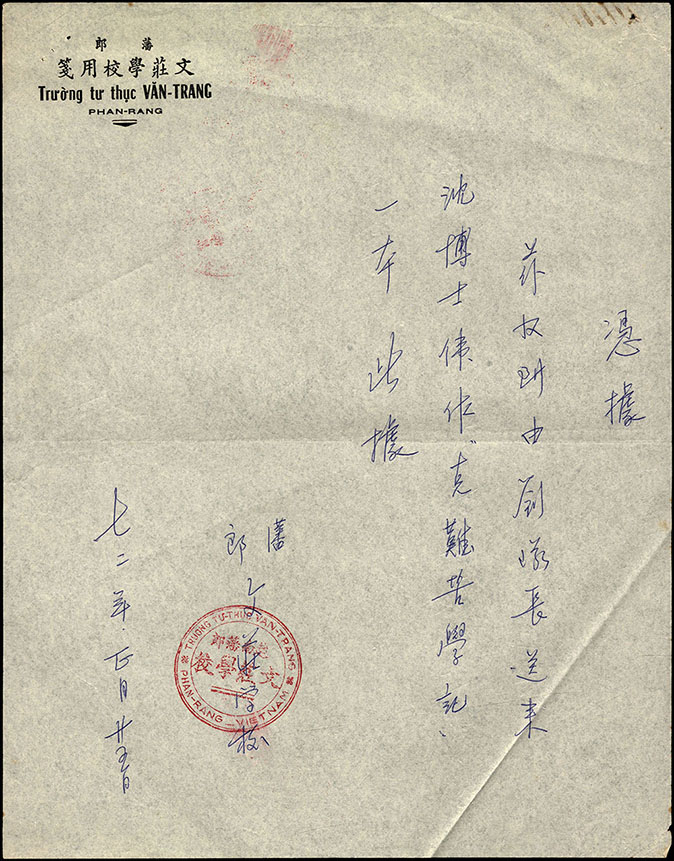 藩郎
文莊學校用箋
Trường tư thục VĂN-TRANG
PHAN-RANG
憑據
茲收到由劉隊長送來
沈博士偉作"克難苦學記"
一本 此據
藩郎文莊学校
TRƯỜNG TƯ-THỤC VĂN-TRANG
越南藩郎
文莊學校
PHAN-RANG - VIETNAM
七二年.正月廿五日